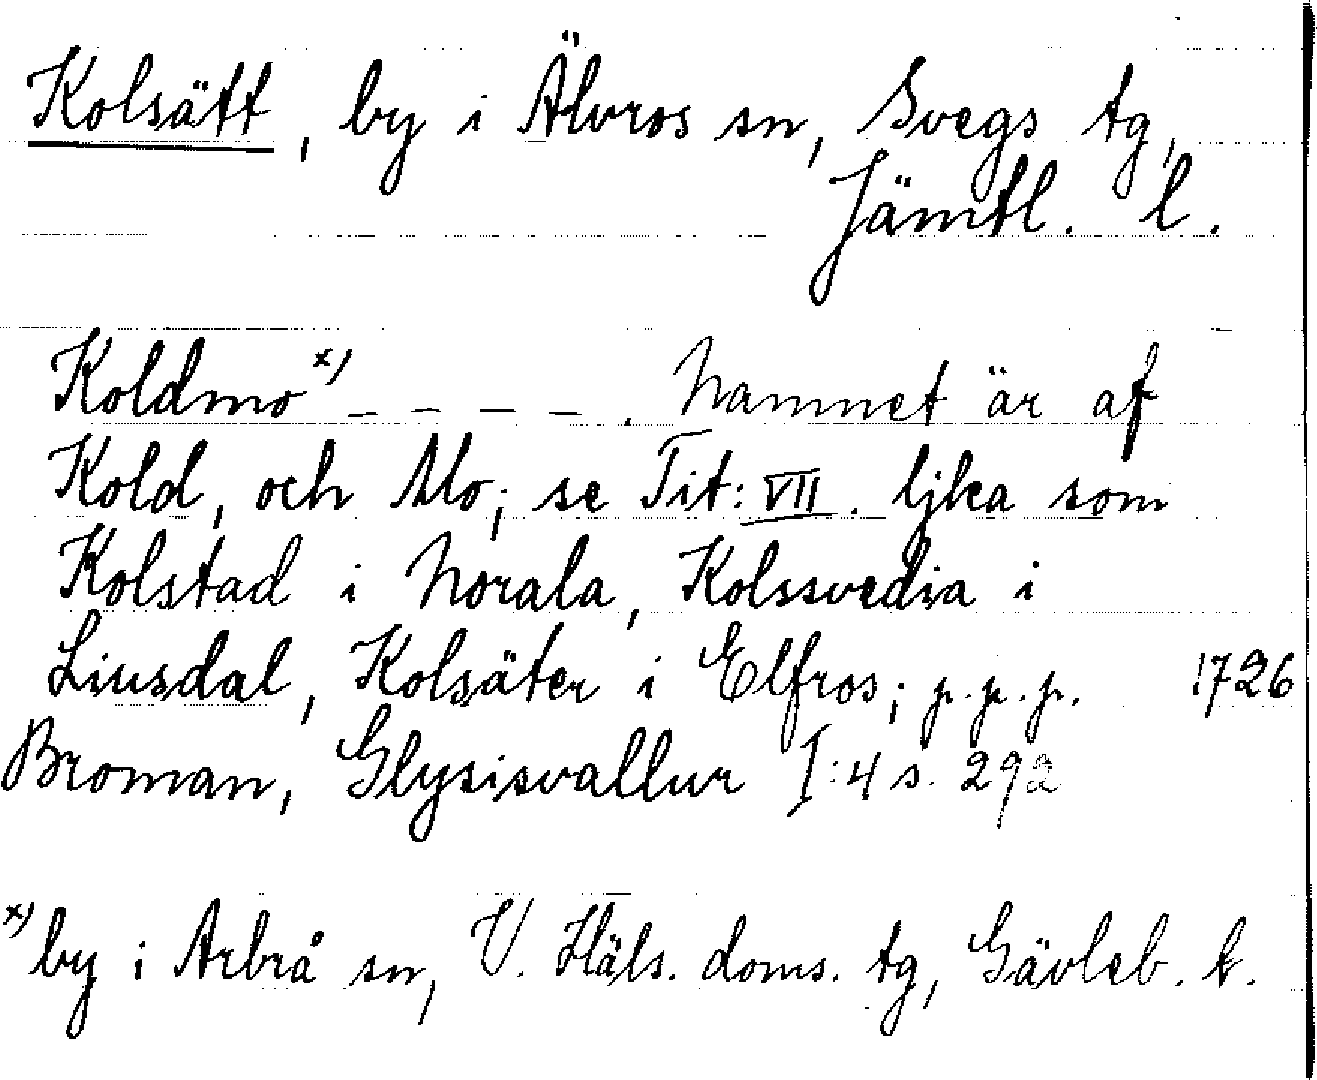 Kolsätt, by i Älvros sn, Svegs tg,
Jämtl. l.
Koldmo x) _ _ _ _ . Namnet är af
Kold, och Mo; se Tit: VII. ljka som
Kolstad i Norala, Kolssvedia i
Liusdal, Kolsäter i Elfros; p.p.p. 1726
Broman, Glysisvallur I:4 s. 292
x) by i Arbrå sn, V. Häls. doms. tg, Gävleb. l.